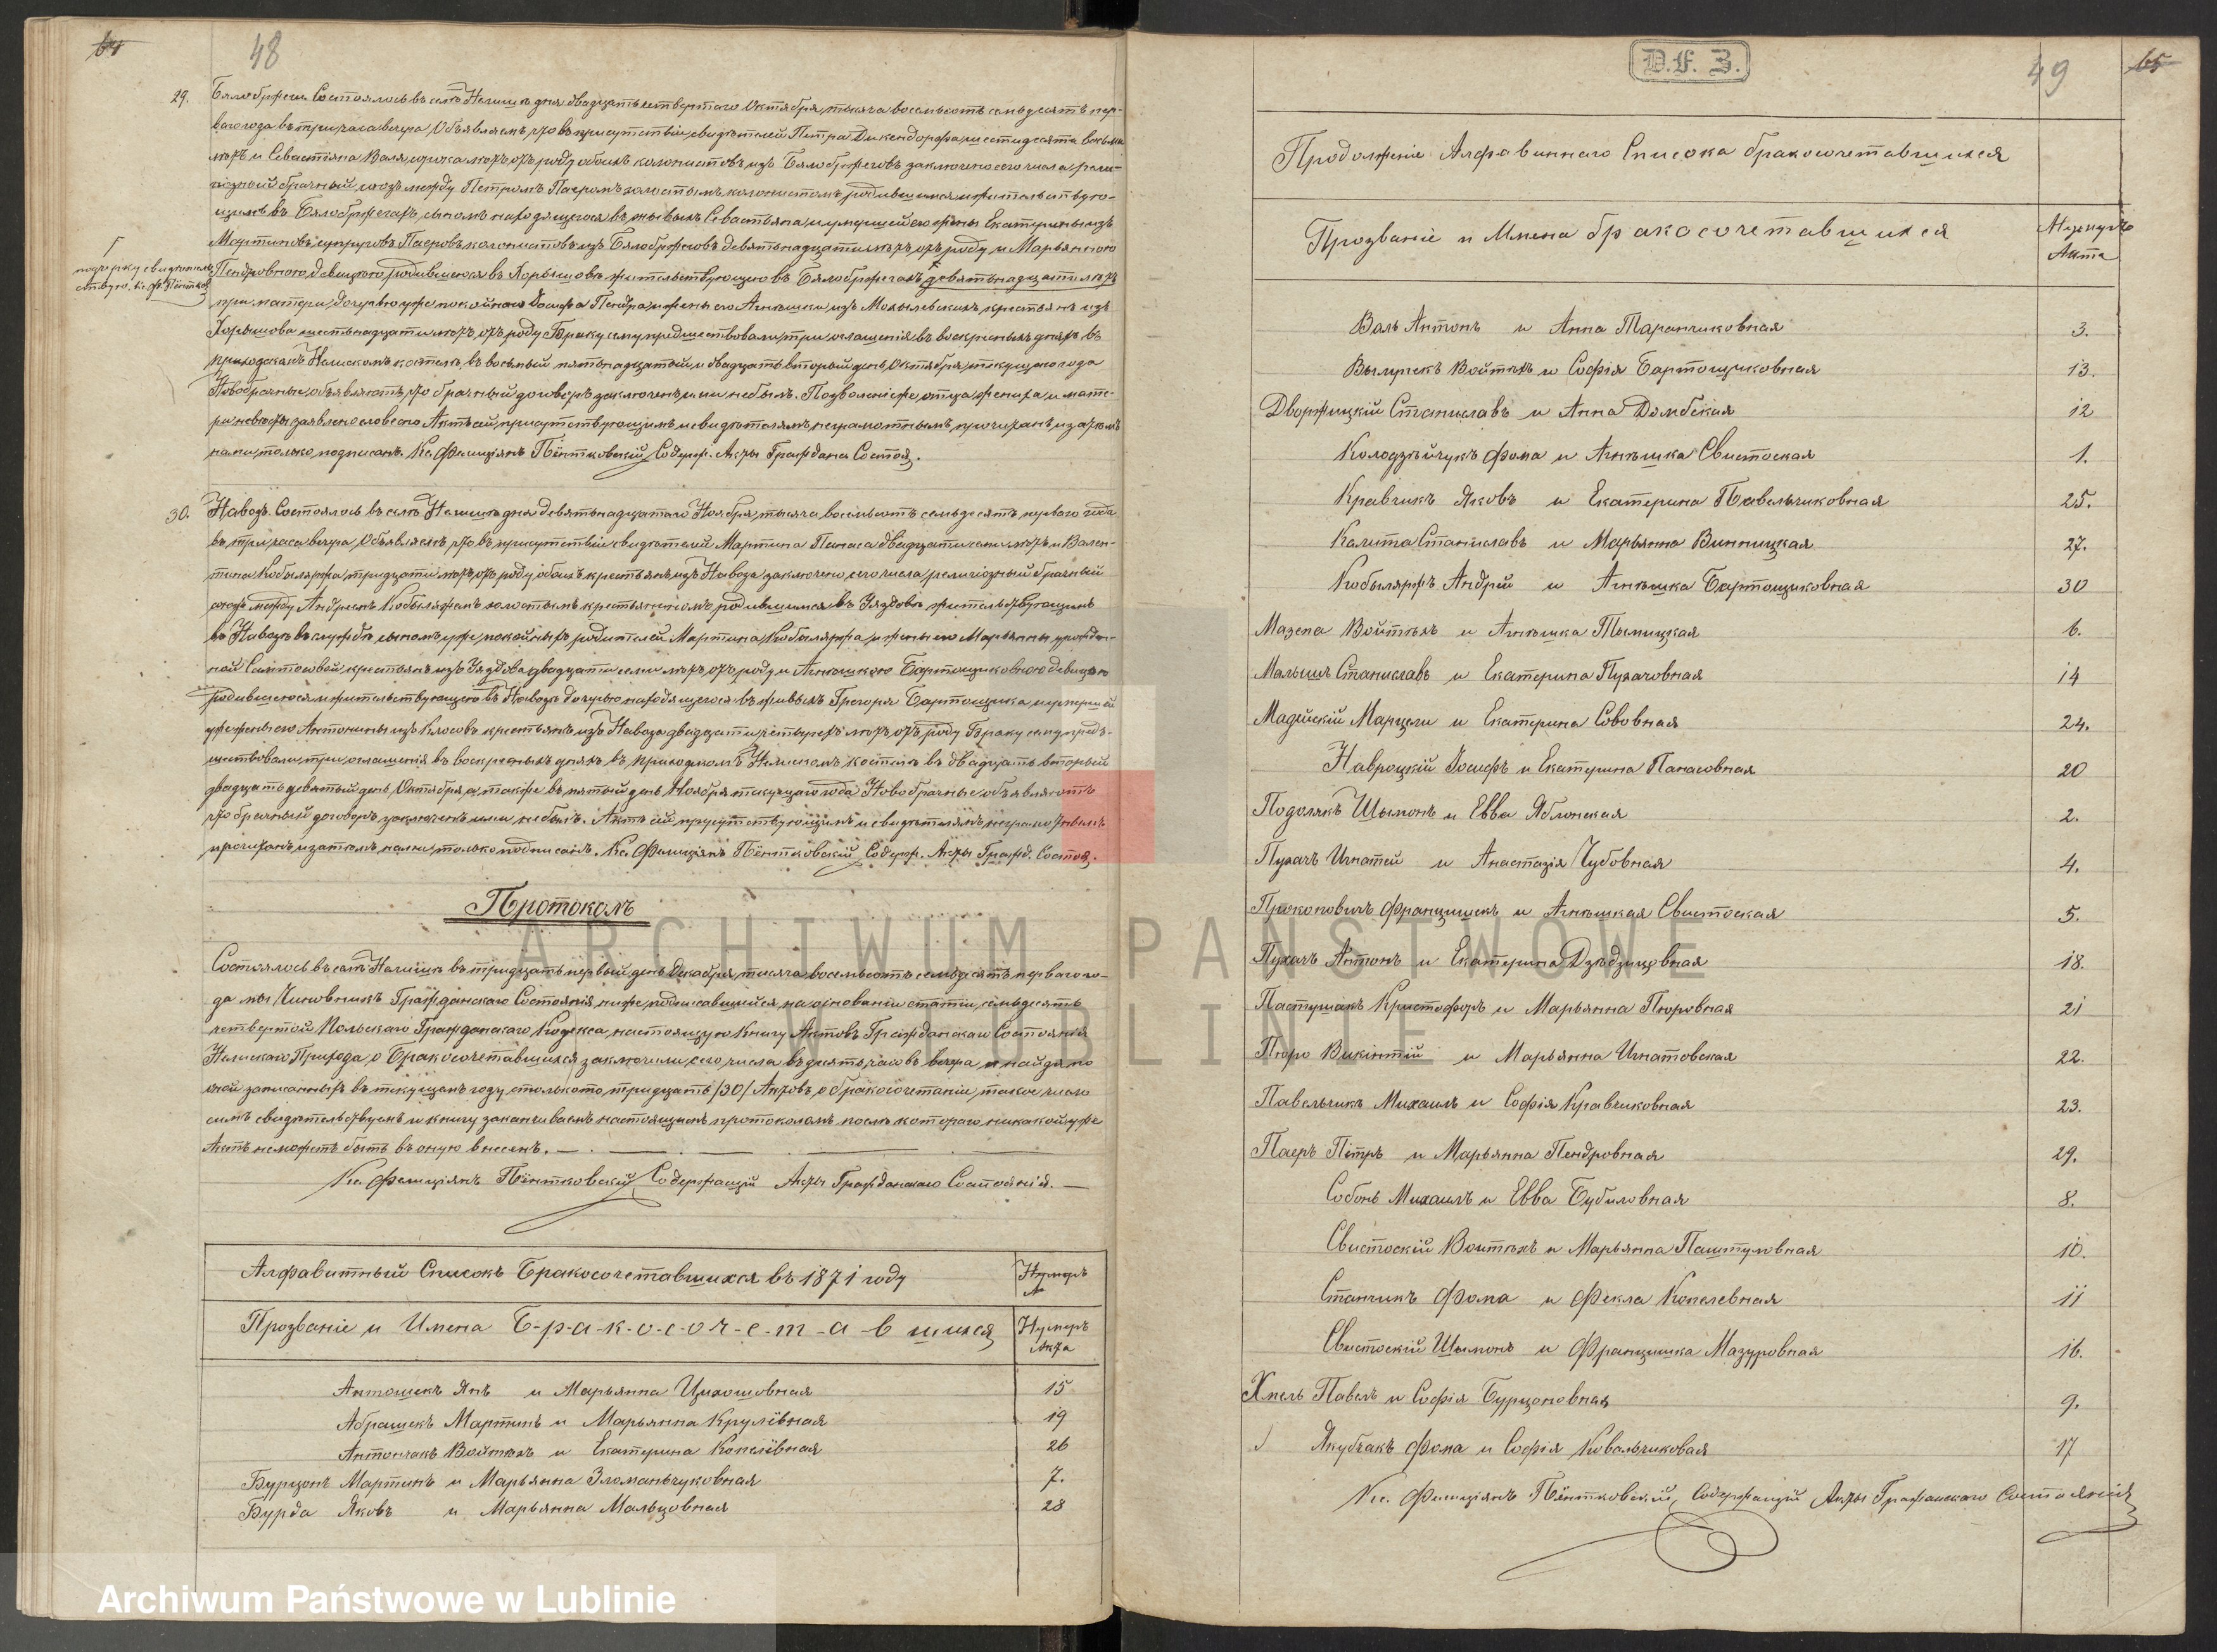 64
48
29. Бялобржеги. Состоялось въ селѣ Нелишъ дня двадцать четвертаго Октября, тысяча восемьсотъ семьдесятъ пер-
ваго года въ три часа вечера, Объявляемъ, что въ присутствіи свидѣтелей Петра Дикендорфа, шестидесяти восьми
лѣтъ и Севастіяна Валя, сорока лѣтъ отъ роду, обоихъ колонистовъ изъ Бялобржеговъ, заключено сего числа рели-
гіозный брачный союзъ между Петромъ Паеромъ холостымъ колонистомъ, родившимся и жительствую-
щимъ въ Бялобржегахъ, сыномъ находящегося въ живыхъ Севастьяна, и умершей его жены Екатерины изъ
Мартиновъ супруговъ Паеровъ колонистовъ изъ Бялобржеговъ девятьнадцати лѣтъ отъ роду и Марьянною
Пендровною, девицею родившеюся въ Горышовѣ жительствующею въ Бялобржегахъ девятьнадцати лѣтъ
при матери, дочерью уже покойнаго Іосифа Пендра, и жены его Агнѣшки изъ крестьянъ изъ
Горышова шестьнадцати лѣтъ отъ роду Браку сему предшествовали, три оглашенія въ воскресныхъ дняхъ въ
приходскомъ Нелискомъ костелѣ, въ восьмый пятьнадцатый и двадцать вторый день Октября, текущаго года
Новобрачные объявляютъ, что брачный договоръ заключенъ ими не былъ. Позволеніе же, отца жениха, и мате-
ри невѣсты заявлено словесно Актъ сей, присутствующимъ и свидѣтелямъ неграмотнымъ, прочитанъ, и затѣмъ
нами только подписанъ. Кс. Фелиціянъ Піонтковскій, Содерж. Акты Гражданск Состоя.
30. Навозъ. Состоялось въ селѣ Нелишъ дня девятьнадцатаго Ноября, тысяча восемьсотъ семьдесятъ перваго года
въ три часа вечера, Объявляемъ, что въ присутствіи свидѣтелей Мартина Панаса двадцати семи лѣтъ и Вален-
тина Кобыляржа, тридцати лѣтъ отъ роду, обоихъ крестьянъ изъ Навоза, заключено, сего числа, религіозный брачный
союзъ между Андреемъ Кобыляржемъ холостымъ крестьяниномъ, родившимся въ Уяздовѣ жительствующимъ
въ Навозѣ въ службѣ, сыномъ, уже, покойныхъ родителей Мартина, Кобыляржа, и жены его Марьянны урожден-
ной крестьянъ изъ Уяздова двадцати семи лѣтъ, отъ роду, и Агнѣшкою Бартошиковною девицею
родившеюся и жительствующею въ Навозѣ дочерью находящегося въ живыхъ Грегоря Бартошика, и умершей
уже жены его Антонины изъ Клосовъ крестьянъ изъ Навоза двадцати четырехъ лѣтъ отъ роду Браку сему пред-
шествовали, три, оглашенія въ воскресныхъ дняхъ въ, приходскомъ Нелискомъ, костелѣ въ двадцать вторый
двадцать девятый день, Октября, а, также въ пятый день Ноября текущаго года Новобрачные объявляютъ
что брачный договоръ, заключенъ ими не былъ. Актъ сей присутствующимъ и свидѣтелямъ неграмотнымъ
прочитанъ, и затѣмъ нами, только подписанъ. Кс. Фелиціянъ Піонтковскій, Содерж. Акты Гражд. Состоя.
Протоколъ
Состоялось въ селѣ Нелишъ въ тридцать первый день Декабря, тысяча восемьсотъ семьдесятъ перваго го-
да мы Чиновникъ Гражданскаго Состоянія ниже, подписавшійся, на основаніи статьи, семьдесятъ
четвертой Польскаго Гражданскаго Кодекса, настоящую Книгу Актовъ Гражданскаго Состоянія
Нелискаго Прихода, о Бракосочетавшихся, заключили, сего, числа въ десять, часовъ вечера, и найдя по
оной записанныхъ въ текущемъ году, столькото, тридцать /30/ Актовъ, о бракосочетаніи, таковое число
симъ свидѣтельствуемъ и книгу заканчиваемъ настоящимъ протоколомъ послѣ котораго, никакой уже
Актъ неможетъ быть въ оную внесенъ. —
Кс. Фелиціянъ Піонтковскій, Содержащій Акты Гражданскаго Состоянія. —
Алфавитный Списокъ Бракосочетавшихся въ 1871 году
Нумеръ
Прозваніе и Имена Б-р-а-к-о-с-о-ч-е-т-а-в шихся
Нумеръ
Акта
Антошекъ Янъ и Марьянна Цихошовная 15
Абрашекъ Мартинъ и Марьянна Крулівная 19
Антончакъ Войтѣхъ и Екатерина Копелівная 26
Бурцонъ Мартинъ и Марьянна Зломаньчуковная 7.
Бурда Яковъ и Марьянна Мальцовная 28
D.F.Z.
49
65
Продолженіе Алфавитнаго Списока бракосочетавшихся
Прозваніе и Имена бракосочетавшихся
Нумеръ
Акта
Валь Антонъ и Анна Таранчиковная 3.
Войтѣхъ и Софія Бартошиковная 13.
Дворжицкій Станиславъ и Анна Домбская 12
Колодзѣйчукъ Фома и Агнѣшка Свистоская 1.
Кравчикъ Яковъ и Екатерина Павельчиковная 25.
Калита Станиславъ и Марьянна Винницкая 27.
Кобыляржъ Андрей и Агнѣшка Бартошиковная 30
Мазепа Войтѣхъ и Агнѣшка Тымицкая 6.
Малышъ Станиславъ и Екатерина Пухачовная 14
Мадейскій Марцели и Екатерина Сововная 24.
Навроцкій Іосифъ и Екатерина Панасовная 20
Подолякъ Шымонъ и Евва Яблонская 2.
Пухачъ Игнатей и Анастазія Чубовная 4.
Прокоповичъ Францишекъ и Агнѣшкая Свистоская 5.
Пухачъ Антонъ и Екатерина Дзѣдзицовная 18.
Пастушакъ Кристофоръ и Марьянна Пюровная 21
Пюро Викентій и Марьянна Игнатовская 22.
Павельчикъ Михаилъ и Софія Кравчиковная 23.
Паеръ Петръ и Марьянна Пендровная 29.
Собонь Михаилъ и Евва Бубиловная 8.
Свистоскій Войтѣхъ и Марьянна Паштуловная 10.
Станчикъ Фома и Фекла Копелевная 11
Свистоскій Шымонъ и Францишка Мазуровная 16.
Хмель Павелъ и Софія Бурцоновная 9.
Якубчакъ Фома и Софія Ковальчиковая 17
Кс. Фелиціянъ Піонтковскій, Содержащій Акты Гражданскаго Состоянія
ARCHIWUM PAŃSTWOWE
W LUBLINIE
Archiwum Państwowe w Lublinie